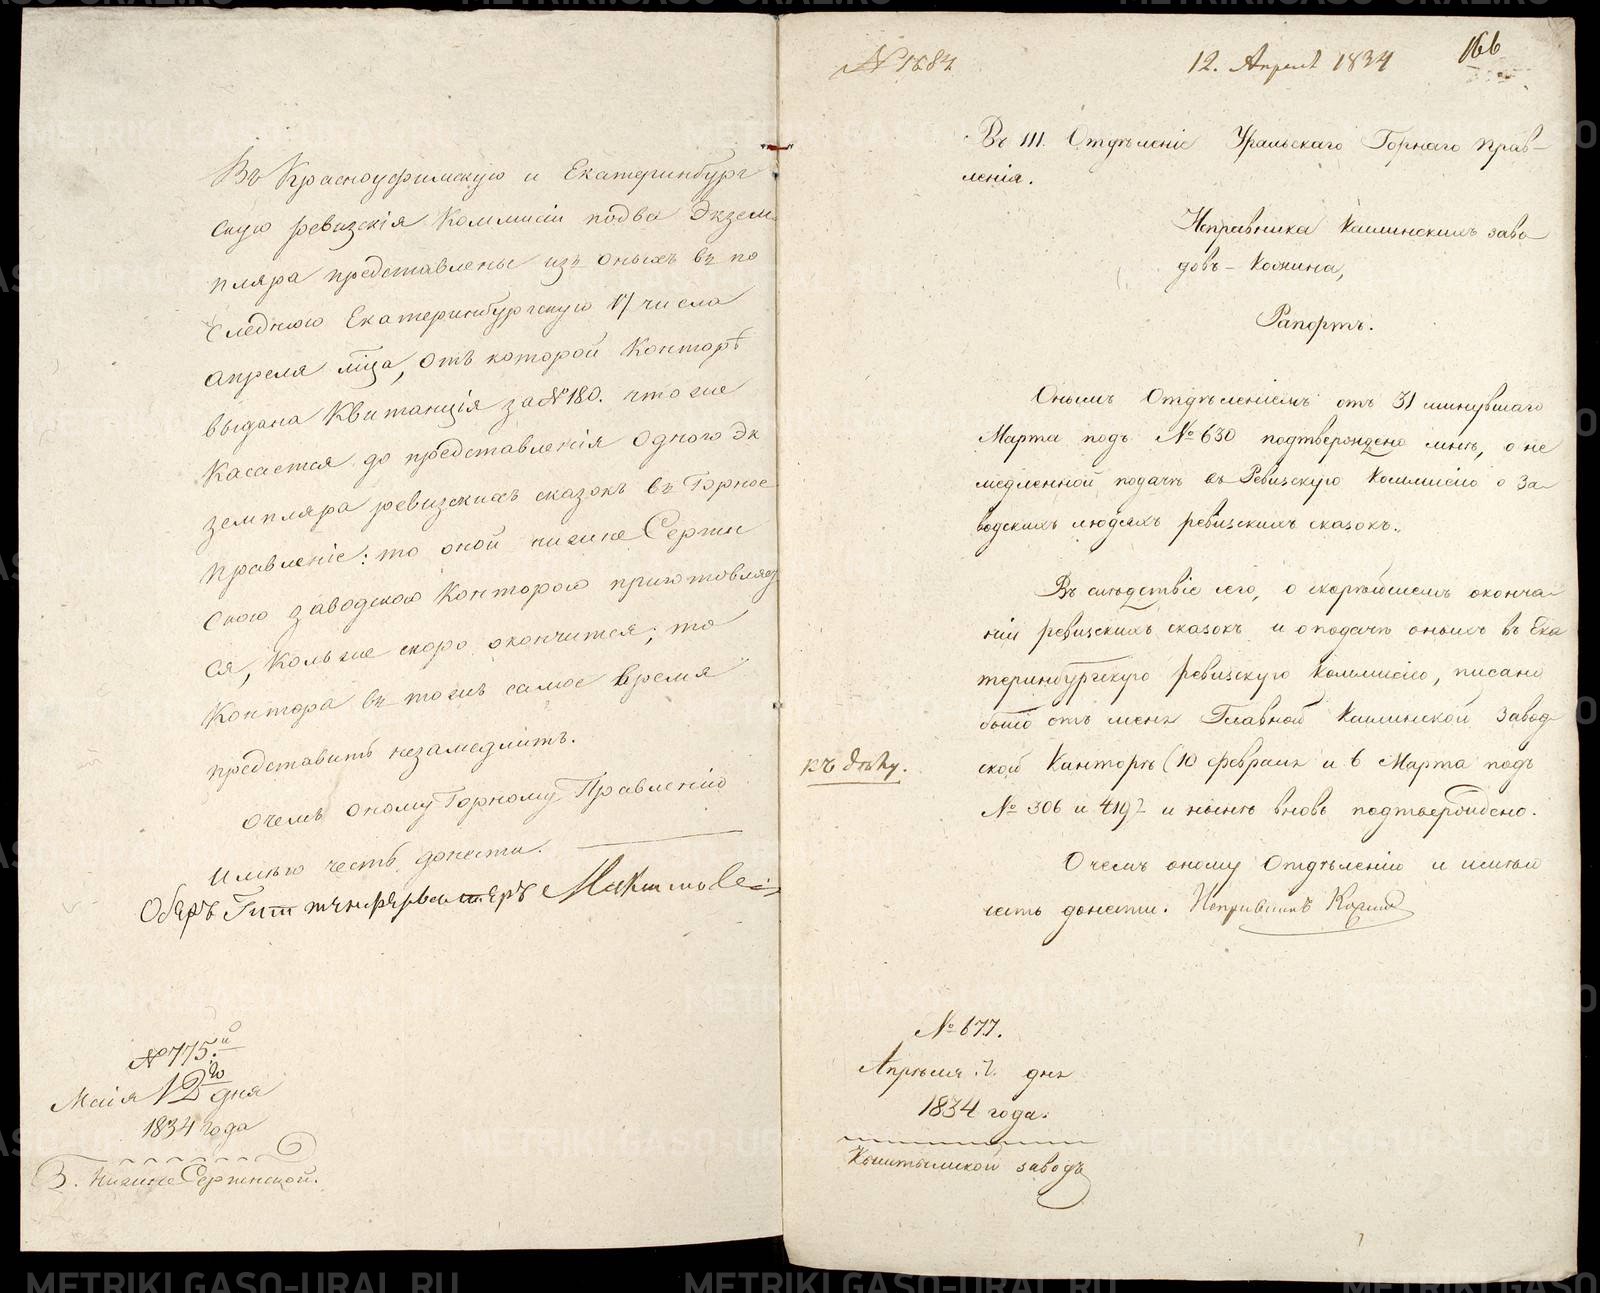 Въ Красноуфимскую и Екатеринбург
скую ревизскія Коммисіи подва Экзем
пляра представлены изъ оныхъ въ по
следнюю Екатеринбургскую 17 числа
апреля мца, отъ которой Конторѣ
выдана Квитанція за № 180. что же
касается до представленія одного эк
земпляра ревизскихъ сказокъ въ Горное
Правленіе: то оной нижне Сергин
скою заводскою Конторою приготовляет
ся, Коль же скоро окончится, то
Контора въ тоже самое время
представить незамедлитъ.
Очемъ оному Горному Правленію
имѣю честь донести.
Обѣръ Гиттенфервалтеръ
№ 775.й
Маія 12го дня
1834 года
З. Нижне Сергинской.
№ 1684.
12. Апреля 1834
166
Въ III. Отдѣленіе Уральскаго Горнаго прав-
ленія.
Исправника Каслинскихъ заво
довъ - Кожина,
Рапортъ.
Онымъ Отдѣленіемъ отъ 31 минувшаго
Марта подъ № 630 подтверждено мнѣ, о не
медленной подачѣ въ Ревизскую Коммисію о За-
водскихъ людяхъ ревизскихъ сказокъ.
Въ слѣдствіе сего, о скорѣйшемъ оконча-
ніи ревизскихъ сказокъ и о подачѣ оныхъ въ Ека
теринбургскую ревизскую коммисію, писано
было отъ меня Главной Каслинской Завод
ской Конторѣ (10 февраля и 6 Марта подъ
№ 306 и 419) и нынѣ вновь подтверждено.
къ дѣлу.
О чемъ оному Отдѣленію и имѣю
честь донести. Исправникъ Кожинъ
№ 677.
Апрѣля 7. дня
1834 года.
Кыштымской заводъ
METRIKI.GASO-URAL.RU